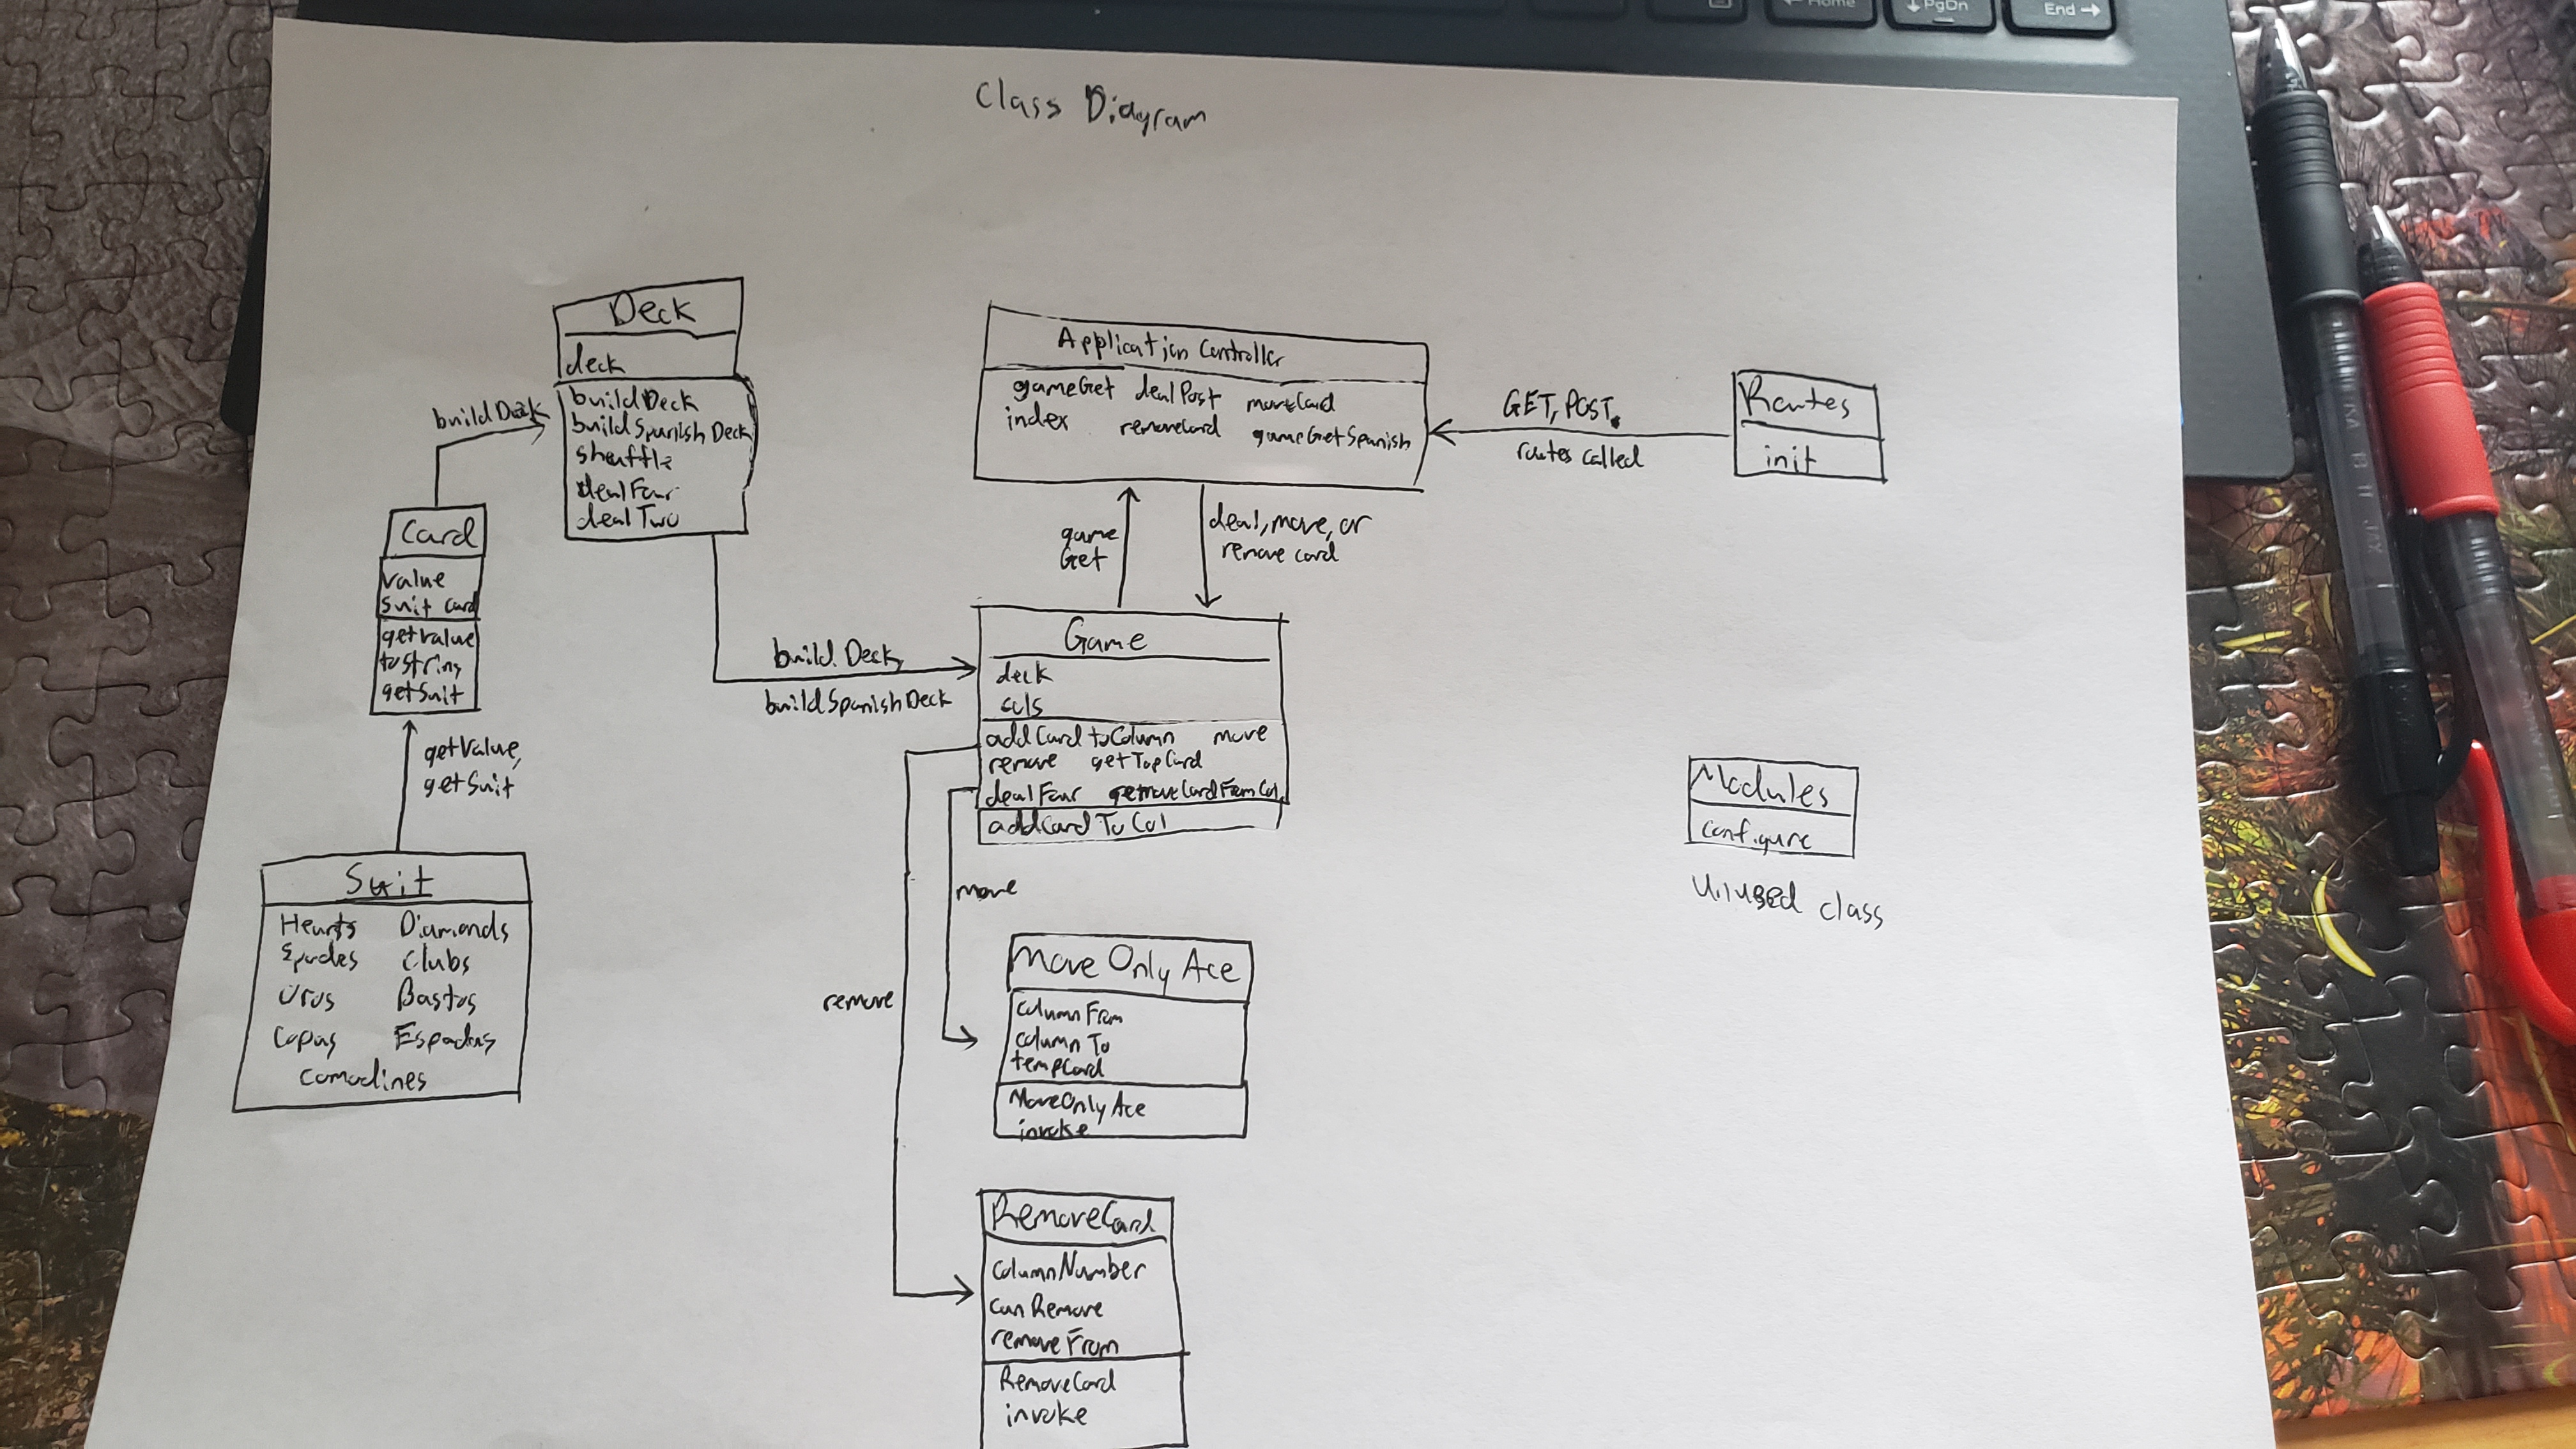 Home
PgDn
End →
Class Diagram
Deck
deck
buildDeck
buildSpanishDeck
shuffle
dealFour
dealTwo
buildDeck
Card
value
suit Card
getValue
toString
getSuit
getValue,
getSuit
Suit
Hearts Diamonds
Spades Clubs
Oros Bastos
Copas Espadas
Comodines
build Deck,
buildSpanishDeck
Application Controller
gameGet dealPost moveCard
index removeCard gameGetSpanish
GET, POST,
routes called
Routes
init
game
Get
deal, move, or
remove card
Game
deck
cols
addCard toColumn move
remove getTopCard
dealFour removeCardFromCol
addCard To Col
move
remove
Move Only Ace
columnFrom
column To
tempCard
MoveOnly Ace
invoke
RemoveCard
columnNumber
can Remove
remove From
RemoveCard
invoke
Modules
configure
Unused class